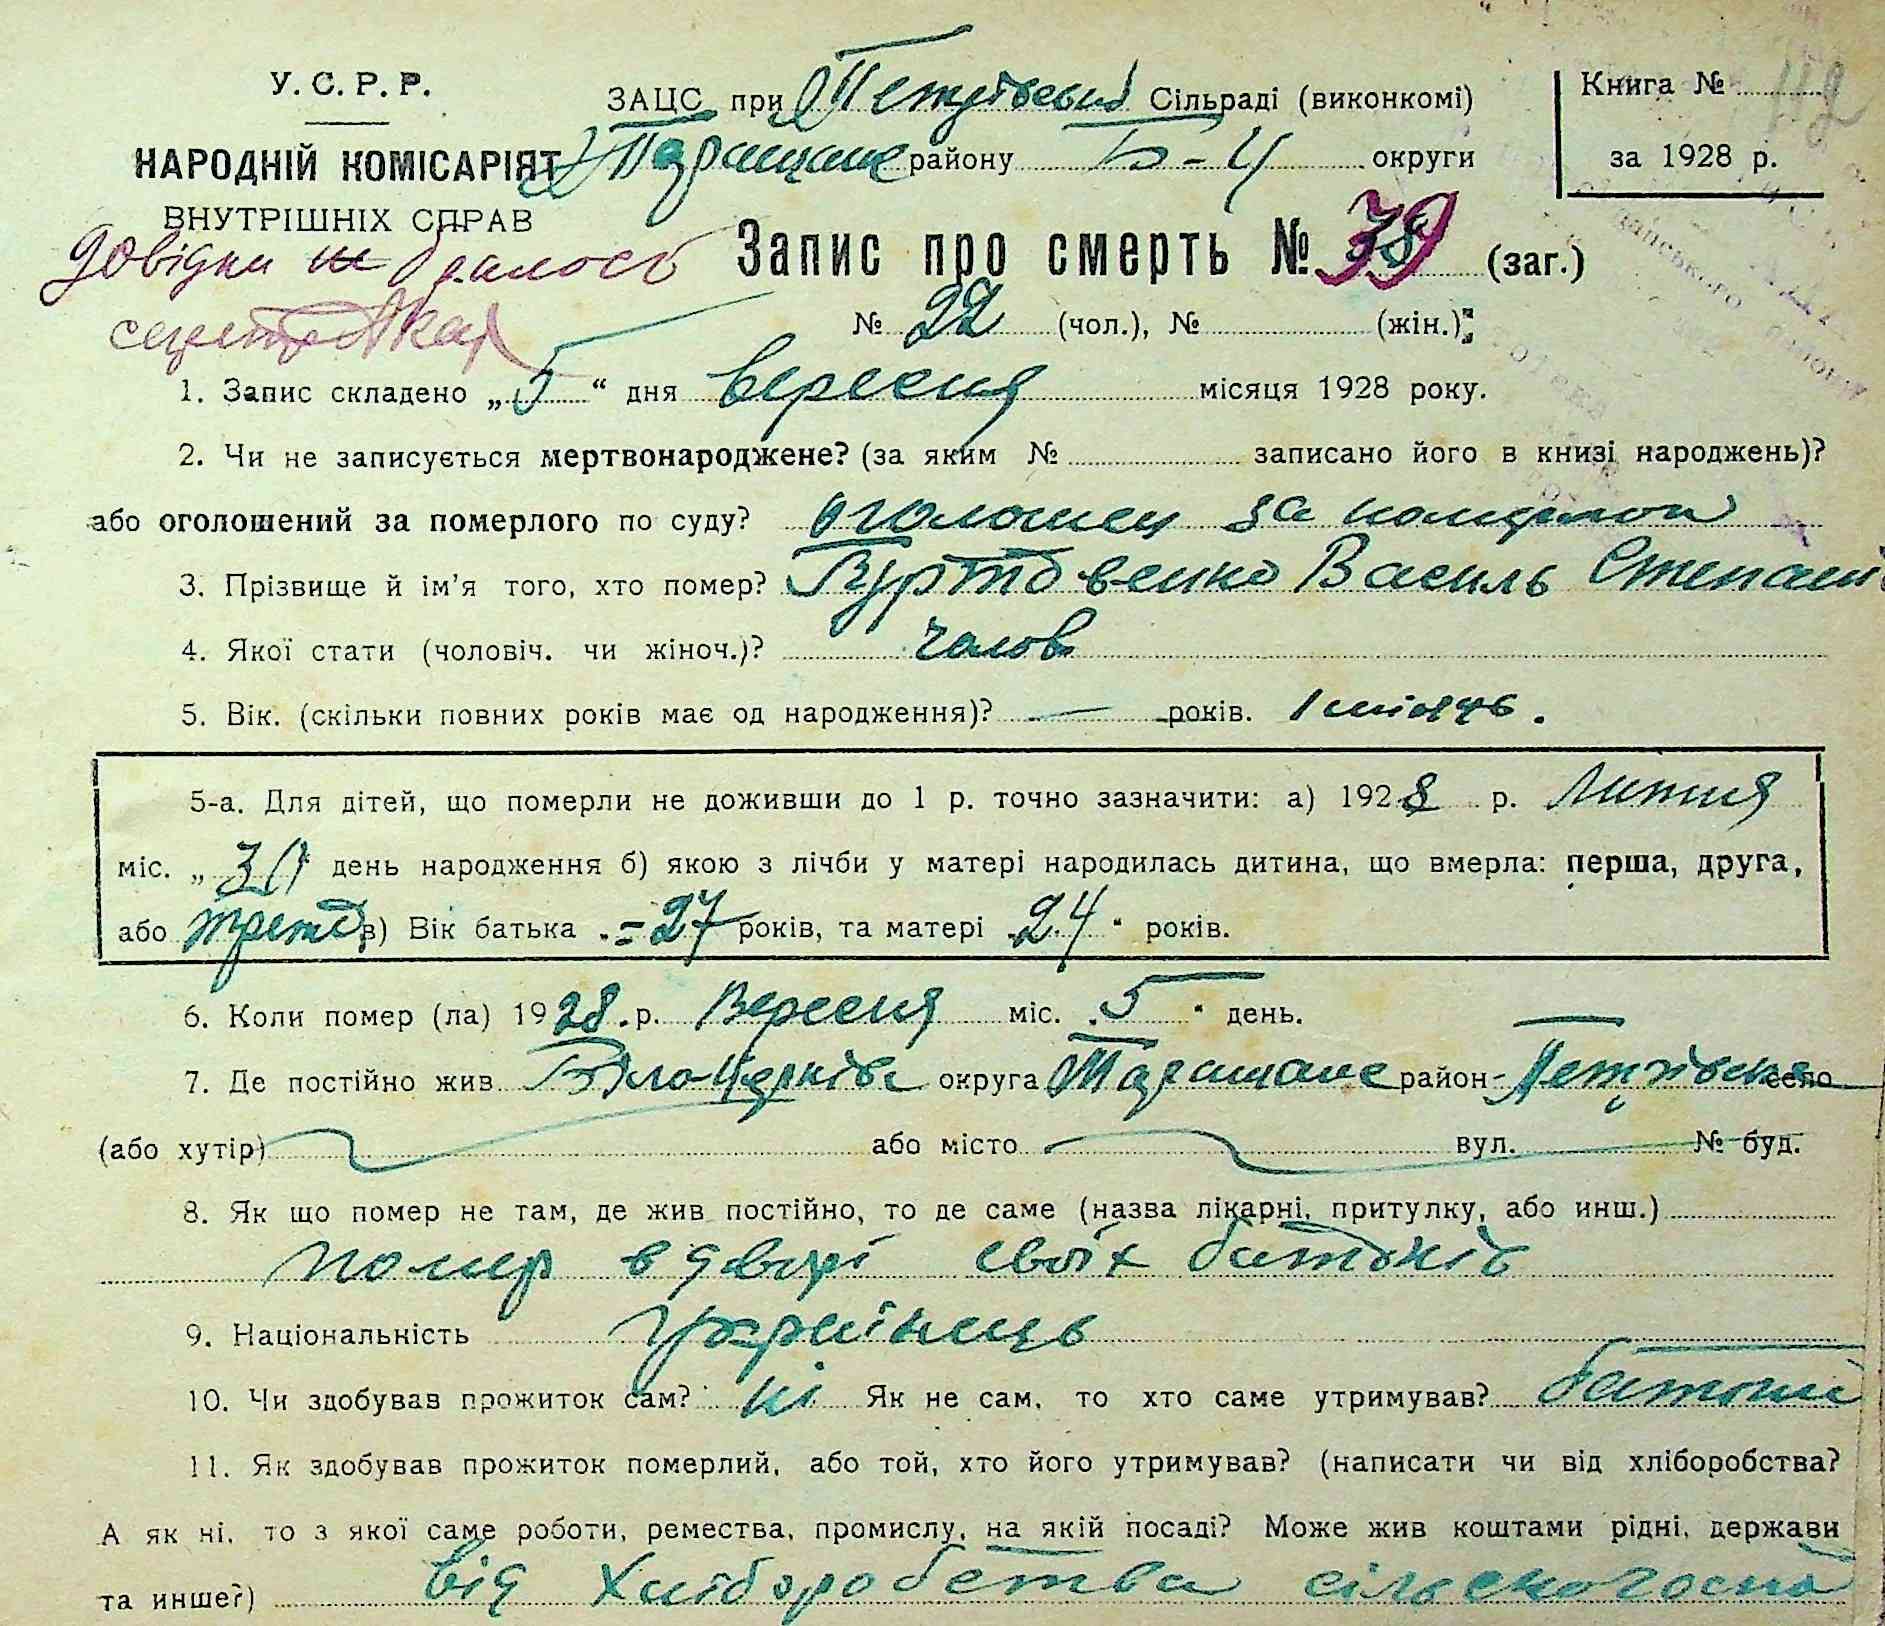 У. С. Р. Р.
НАРОДНІЙ КОМІСАРІЯТ
ВНУТРІШНІХ СПРАВ
ЗАЦС при Петрівській Сільраді (виконкомі)
Таращанс району Б-Ц округи
Книга №
за 1928 р.
Довідки не бралось
Запис про смерть № 39 (заг.)
№ 22 (чол.), № (жін.)
1. Запис складено „5“ дня вересня місяця 1928 року.
2. Чи не записується мертвонароджене? (за яким № записано його в книзі народжень)?
або оголошений за померлого по суду? оголошен за
3. Прізвище й ім’я того, хто помер? Василь Степан
4. Якої стати (чоловіч. чи жіноч.)? чолов
5. Вік. (скільки повних років має од народження)? — років. 1 місяць.
5-а. Для дітей, що померли не доживши до 1 р. точно зазначити: а) 1928 р. Липня
міс. „30 день народження б) якою з лічби у матері народилась дитина, що вмерла: перша, друга,
або в) Вік батька 27 років, та матері 24 “ років.
6. Коли помер (ла) 1928 р. Вересня міс. „5“ день.
7. Де постійно жив Білоцерківс округа Таращанс район- село
(або хутір) або місто вул. № буд.
8. Як що помер не там, де жив постійно, то де саме (назва лікарні, притулку, або инш.)
помер в дворі своїх батьків
9. Національність Українець
10. Чи здобував прожиток сам? ні Як не сам, то хто саме утримував? батьки
11. Як здобував прожиток померлий, або той, хто його утримував? (написати чи від хліборобства?
А як ні, то з якої саме роботи, ремества, промислу, на якій посаді? Може жив коштами рідні, держави
та инше?) від Хліборобства